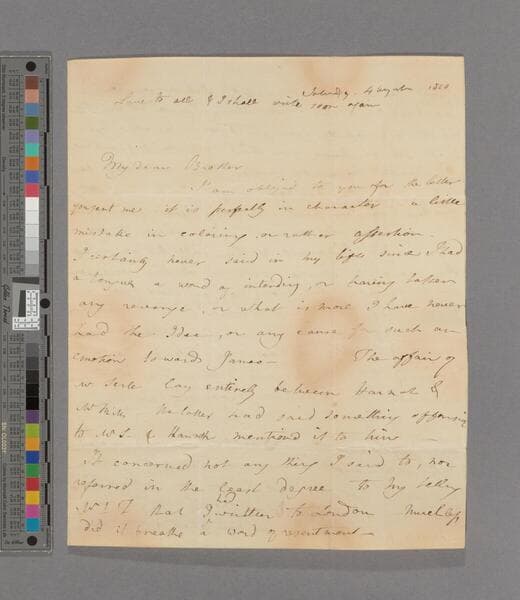 Love to all & I shall write soon again
Saturday 4
My dear Brother
I am obliged to you for the letter
you sent me it is perfectly in character a little
mistake in coloring or rather affection.
I certainly never said in my life since I had
a tongue a word of intending, or having taken
any revenge, or what is more I have never
had the Idea, or any cause for such an
emotion towards James — The affair of
Mr Serle lay entirely between Hannah &
Mr the latter had said something offensive
to Mr S. & Hannah mentioned it to him —
It concerned not any thing I said to, nor
referred in the least degree to my telling
Mr that I had written to London much less
did it breathe a word of resentment —